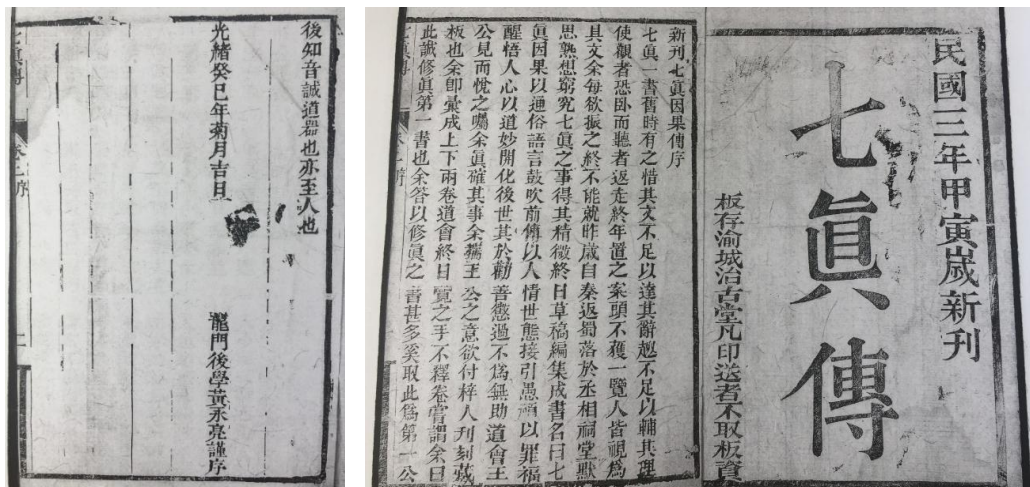 民國三年甲寅歲新刊
七眞傳
板存渝城治古堂凡印送者不取板資
新刊七眞因果傳序
七眞一書舊時有之惜其文不足以達其辭趣不足以輔其理
使觀者恐卧而聽者返走終年置之案頭不獲一覽人皆視爲
具文余每欲振之終不能就昨歲自秦返蜀落於丞相祠堂默
思熟想窮究七眞之事得其精微終日草稿編集成書名曰七
眞因果以通俗語言鼓吹前傳以人情世態接引愚頑以罪福
醒悟人心以道妙開化後世其於勸善懲過不爲無助道會王
公見而悅之囑余眞確其事余王公之意欲付梓人刊刻藏
板也余卽彙成上下兩卷道會終日覽之手不釋卷嘗謂余曰
此誠修眞第一書也余答以修眞之書甚多奚取此爲第一公
後知音誠道器也亦至人也
光緒癸巳年菊月吉旦
龍門後學黃永亮謹序